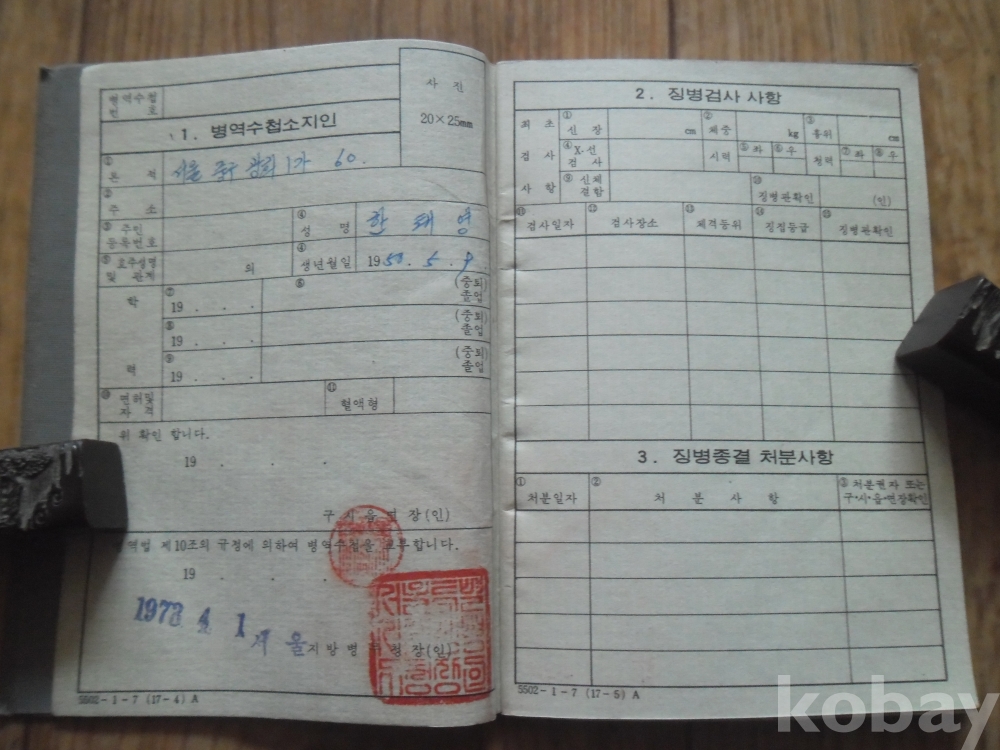 병역수첩
번 호
사 진
20×25mm
1. 병역수첩소지인
① 본 적
서울 중구 1가 60.
② 주 소
③ 주민
등록번호
④ 성 명
한 태 영
⑤ 호주성명
및 관계
의
④ 생년월일
1953. 5. 9
학
력
⑦ 19 . . .
⑥
(중퇴)
졸업
⑧ 19 . . .
(중퇴)
졸업
⑨ 19 . . .
(중퇴)
졸업
⑩ 면허및
자 격
⑪ 혈액형
위 확인 합니다.
19 . . .
구 시 읍 면 장 (인)
병역법 제10조의 규정에 의하여 병역수첩을 교부합니다.
19 . . .
1973 4 1
서울지방병무청장(인)
5502-1-7 (17-4) A
2. 징병검사 사항
최 초
검 사
사 항
① 신 장
cm
② 체중
kg
③ 흉위
cm
④ X-선
검 사
시력
⑤ 좌
⑥ 우
청력
⑦ 좌
⑧ 우
⑨ 신체
결함
⑩ 징병관확인
(인)
⑪ 검사일자
⑫ 검사장소
⑬ 체격등위
⑭ 징집등급
⑮ 징병관확인
3. 징병종결 처분사항
① 처분일자
② 처 분 사 항
③ 처분권자 또는
구·시·읍·면장확인
5502-1-7 (17-5) A
kobay